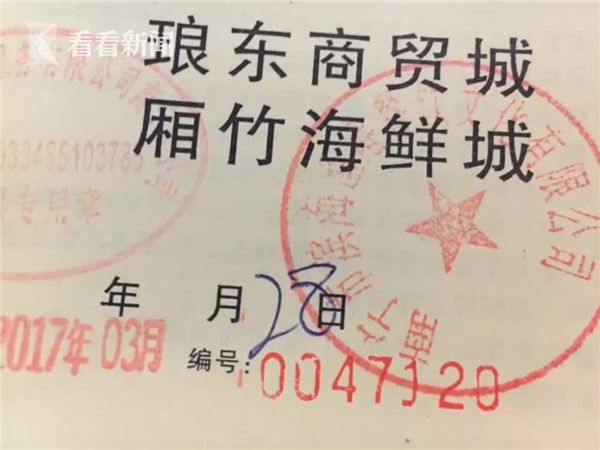 看看新闻
琅东商贸城
厢竹海鲜城
务有限公司
33485103785
专用章
文化有限公司
年 月28日
2017年03月
编号:0047120